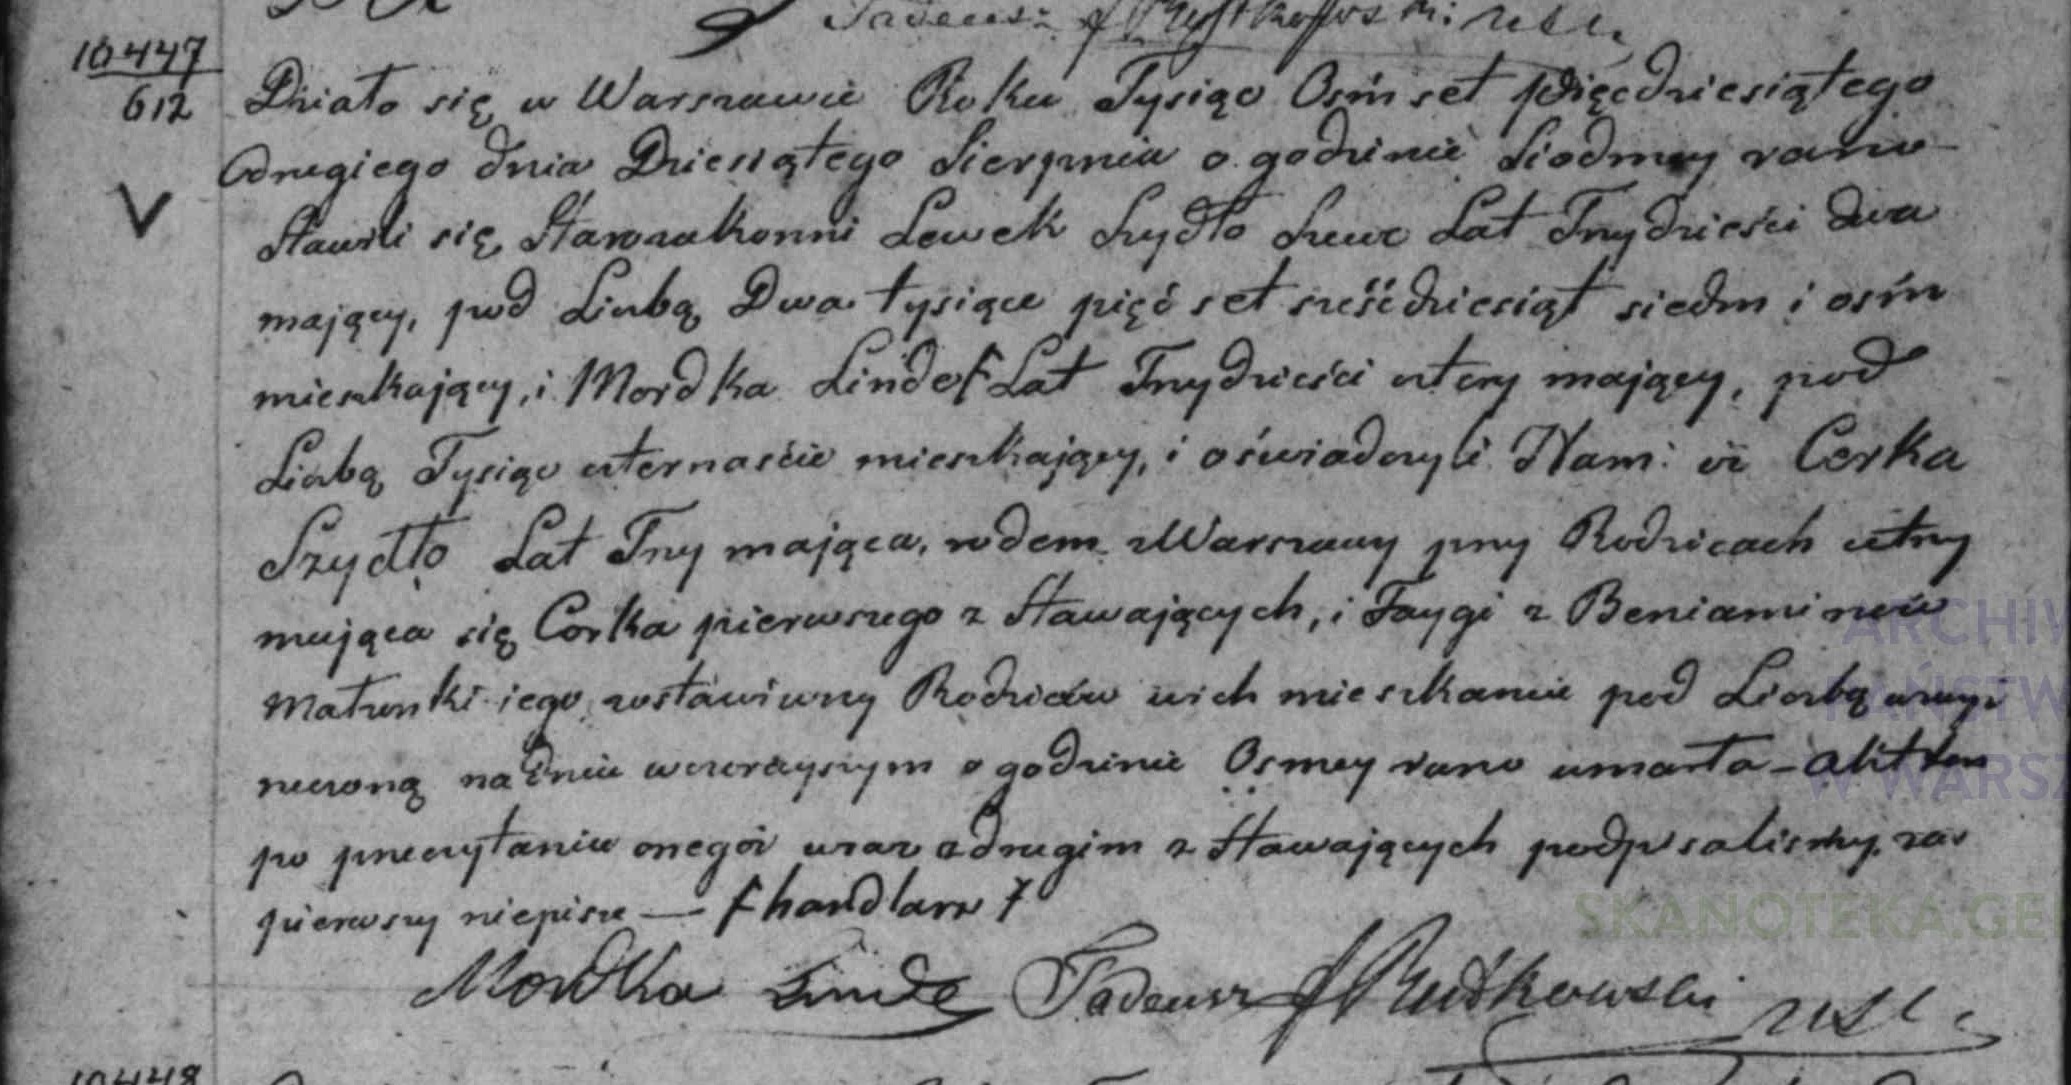 Tadeusz Rutkowski
10447
612
Działo się w Warszawie Roku Tysiąc Ośmset pięcdziesiątego
drugiego dnia Dziesiątego Sierpnia o godzinie Siodmey rano
V
Stawili się Starozakonni Lewek Szydło Szewc Lat Trzydzieści dwa
mający, pod Liczbą Dwa tysiące pięć set sześćdziesiąt siedm i ośm
mieszkający, i Mordka Linde Ƒ Lat Trzydzieści cztery mający, pod
Liczbą Tysiąc czternaście mieszkający, i oświadczyli Nam: iż Cerka
Szydło Lat Trzy mająca, rodem z Warszawy przy Rodzicach utrzy
mująca się Corka pierwszego z Stawających, i Faygi z Beniaminów
Małzonki iego, zostawiwszy Rodziców w ich mieszkaniu pod Liczbą wzwyż
rzeczoną na dniu wczorayszym o godzinie Osmey rano umarła – Akt ten
po przeczytaniu onegoż wraz z drugim z Stawających podpisalismy, zaś
pierwszy niepisze — Ƒ handlarz Ƒ
Mordka Linde Tadeusz Rutkowski
10448
ARCHIW
PAŃSTW
W WARSZ
SKANOTEKA.GE